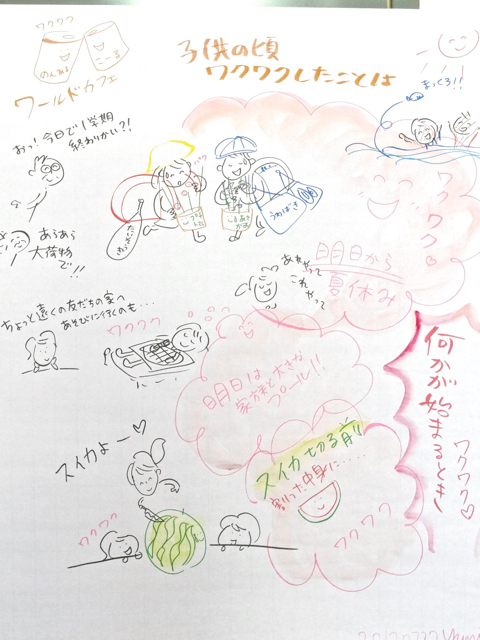 ワクワク
のんある
こころ
ワールドカフェ
子供の頃
ワクワクしたことは
まっくろ!!
おっ!今日で1学期
終わりかい?!
たいそうぎ
うわばき
ワクワク♡
あらあら
大荷物
で!!
明日から
夏休み
あれやって
これ
やって
ちょっと遠くの友だちの家へ
あそびに行くのも…
ワクワク
明日は
家族と大きな
プール!!
何かが始まるとき
ワクワク♡
スイカよー♡
スイカ切る前!
割った中身に....
ワクワク
ワクワク